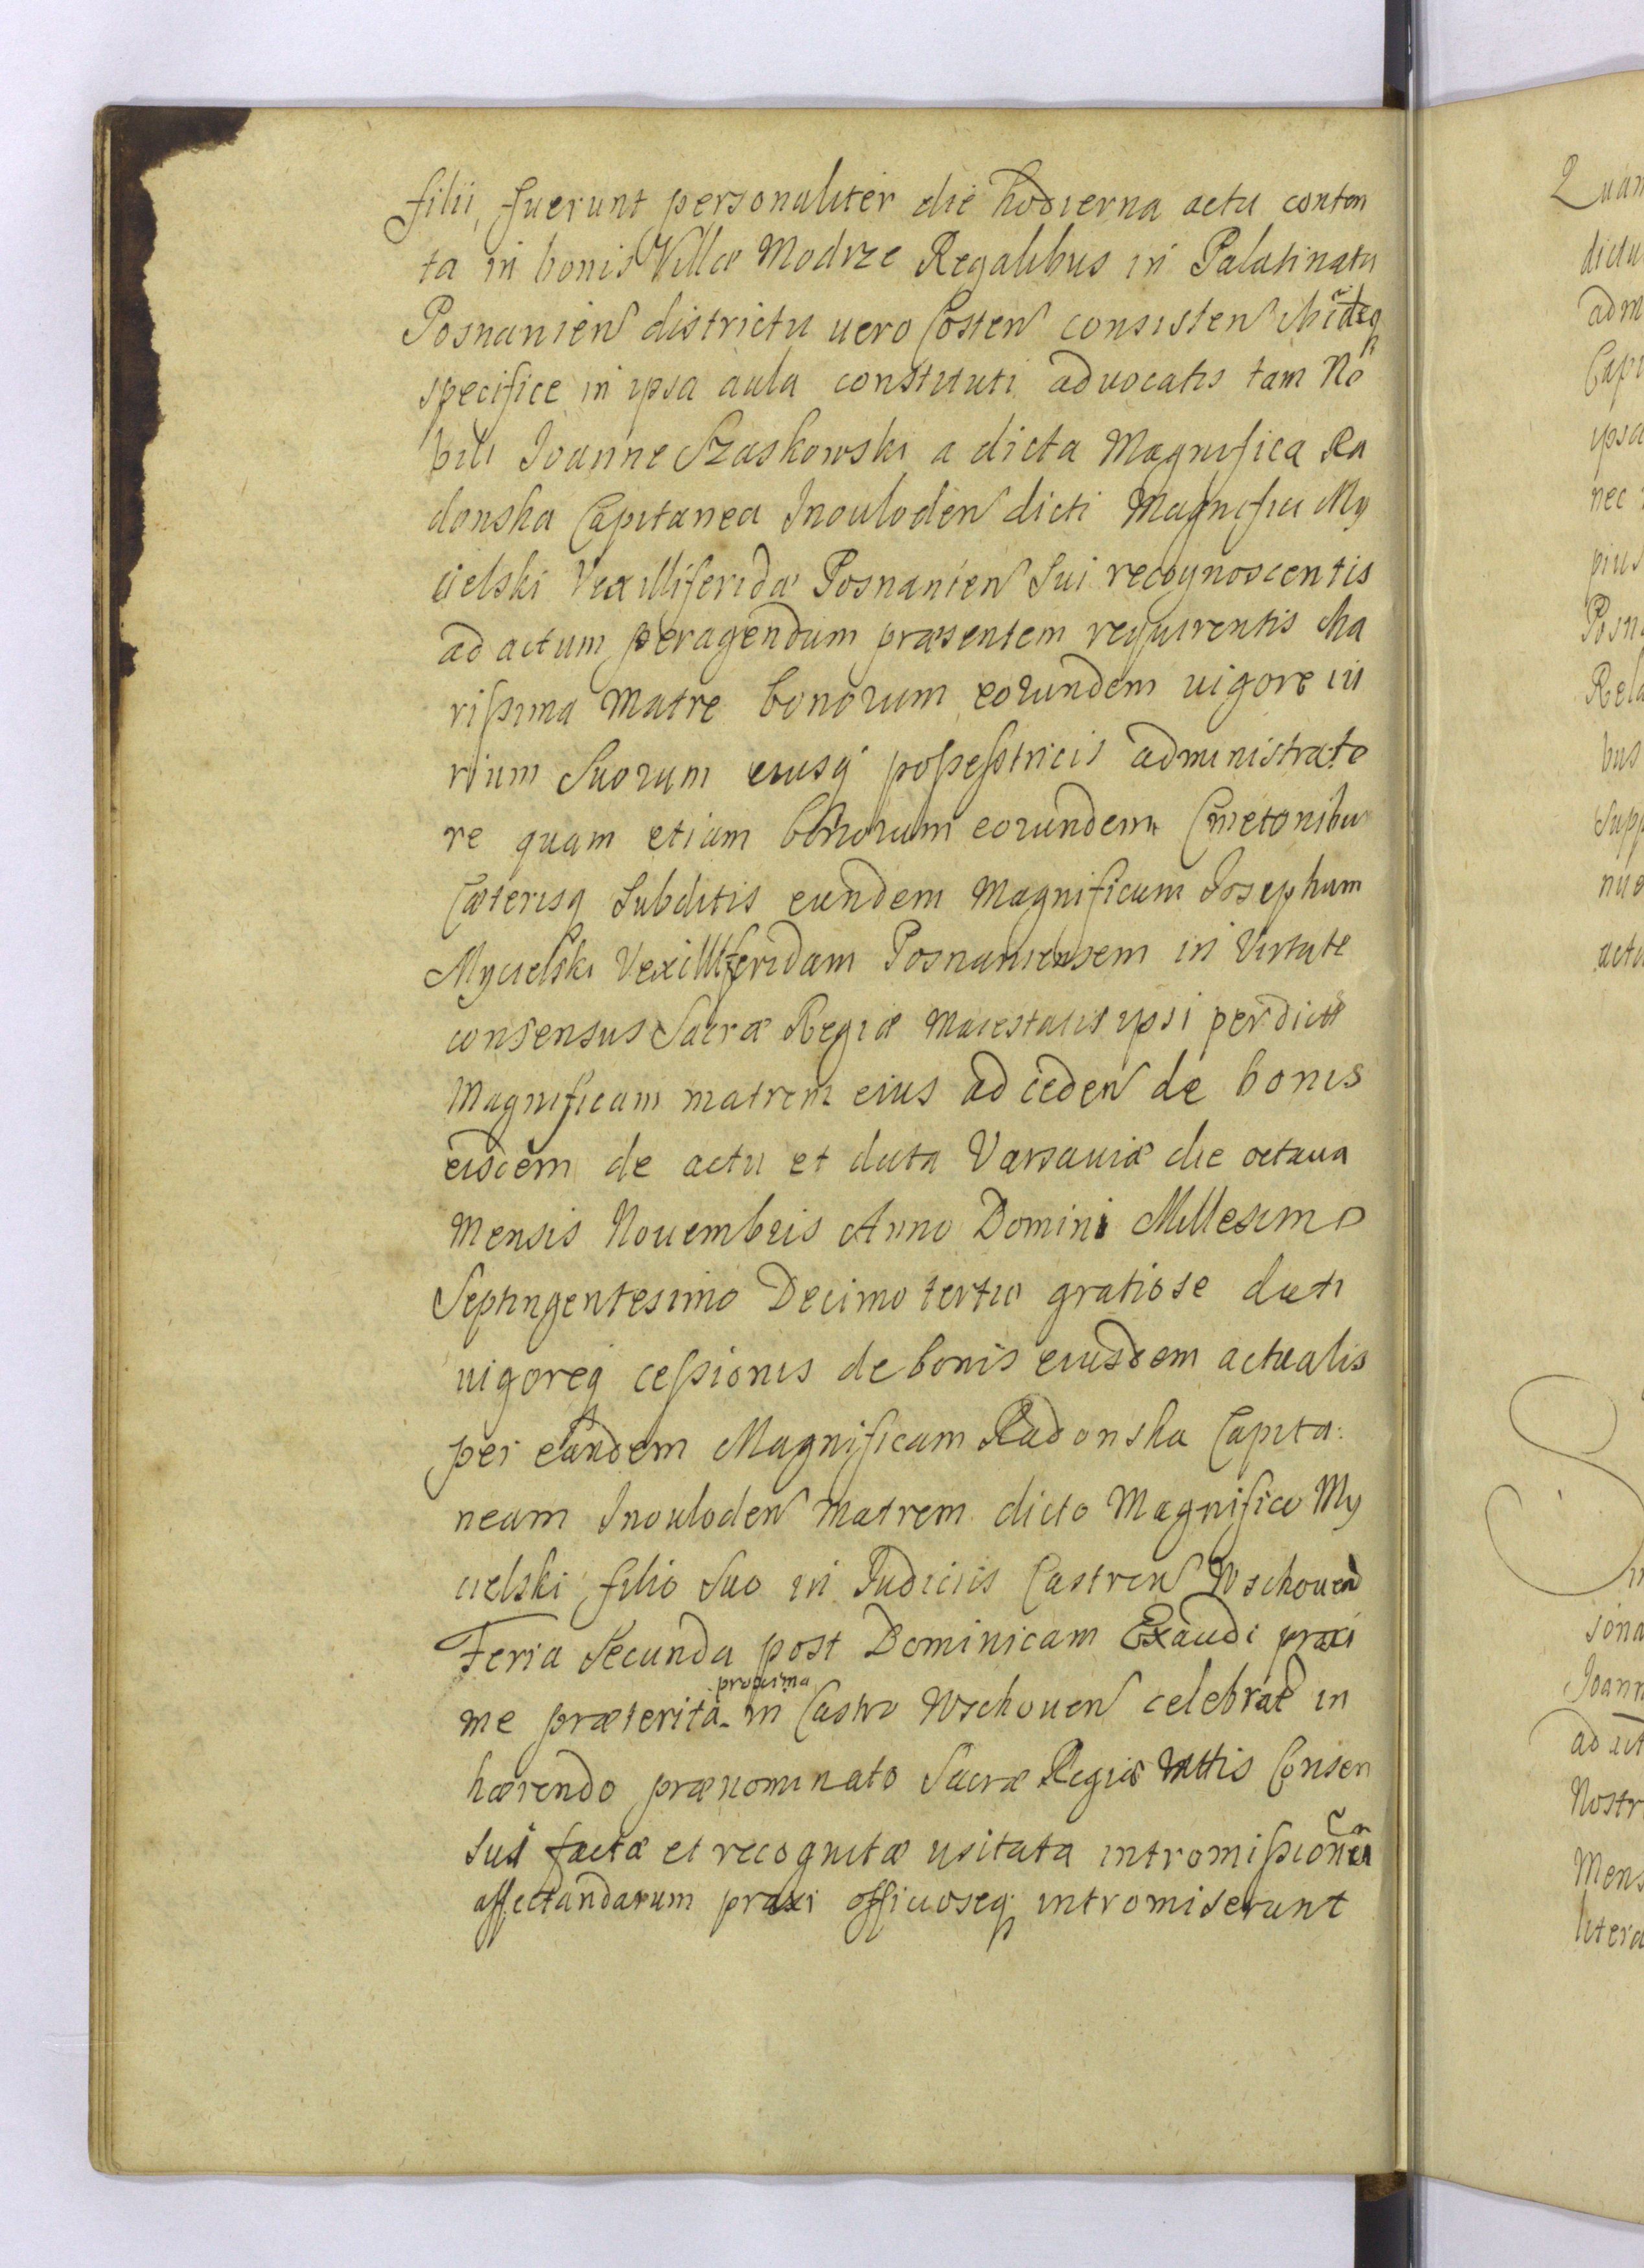 filii, fuerunt personaliter die hodierna actu conten
ta in bonis Villæ Modrze Regalibus in Palatinatu
Posnanien districtu uero Costen consisten ibidẽq
specifice in ipsa aula constituti aduocatis tam No
bili Joanne Szaskowski a dicta Magnifica Ra
donska Capitanea Inouloden dicti Magnifici My
cielski Vexilliferidæ Posnanien Sui recognoscentis
ad actum peragendum præsentem requirentis cha
rissima Matre bonorum eorundem uigore iu
rium Suorum eiusq possesstricis administrato
re quam etiam bonorum eorundem Cmetonibus
Cæterisq Subditis eundem Magnificum Josephum
Mycielski Vexilliferidam Posnaniensem in Virtute
consensus Sacræ Regiæ Maiestatis ipsi per dictã
Magnificam matrem eius ad ceden de bonis
eisdem de actu et data Varsauiæ die octaua
Mensis Nouembris Anno Domini Millesimo
Septingentesimo Decimo tertio gratiose dati
uigoreq cessionis de bonis eiusdem actualis
per eandem Magnificam Radonska Capita:
neam Inouloden Matrem dicto Magnifico My
cielski filio Suo in Judiciis Castren Wschouen
Feria Secunda post Dominicam Exaudi proxi
me præterita in Castro Wschouen celebrat in
hærendo prænominato Sacræ Regiæ Mttis Consen
sui factæ et recognitæ usitata intromissionũ
affectandarum praxi officioseq intromiserunt
Quam
dictu
adm
Capi
ipsa
nec
pius
Posn
Rela
bus
Supp
nue
actu
S
in
sona
Joann
ad ict
Nostr
Mens
litera